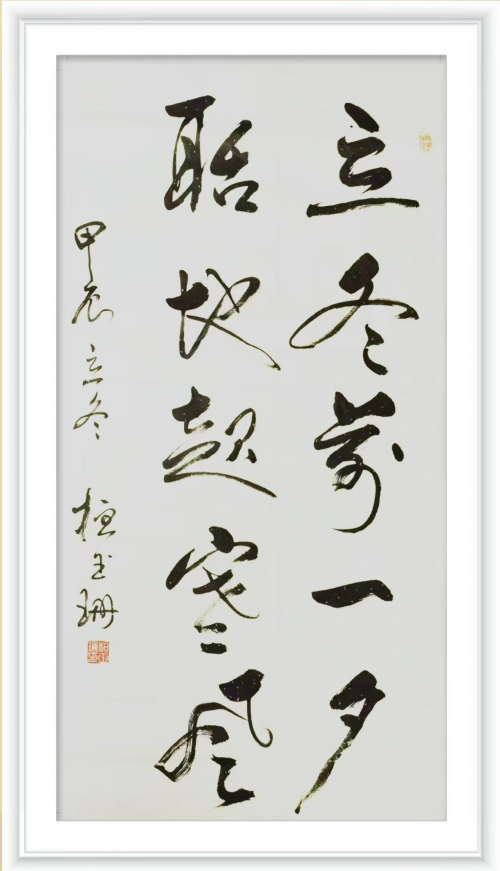 立冬前一夕
聒地起寒风
甲辰立冬 玉珊